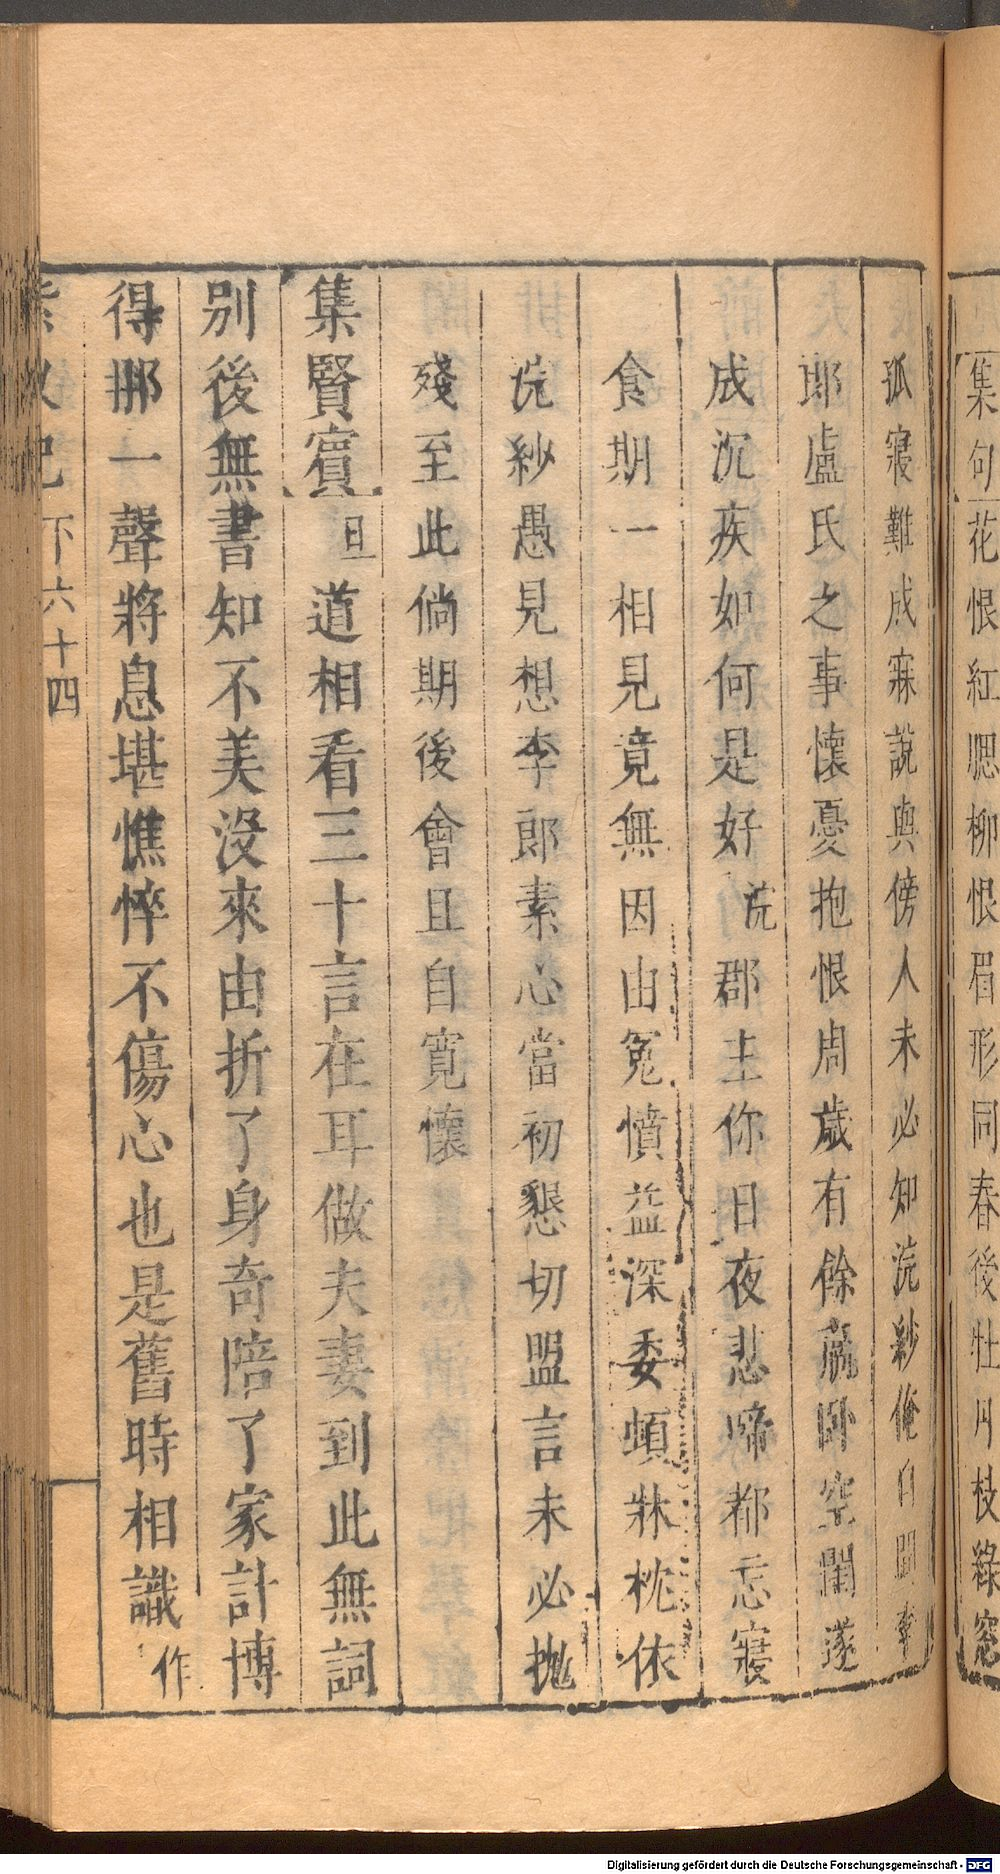 集句花恨紅腮柳恨眉形同春後牡丹枝綠窓
孤寢難成寐說與傍人未必知浣紗俺自聞李
郎盧氏之事懷憂抱恨周歲有餘羸卧空閨遂
成沉疾如何是好浣郡主你日夜悲啼都忘寢
食期一相見竟無因由冤憤益深委頓牀枕依
浣紗愚見想李郎素心當初懇切盟言未必抛
殘至此倘期後會且自寬懷
集賢賓旦道相看三十言在耳做夫妻到此無詞
别後無書知不美没來由折了身奇陪了家計博
得那一聲將息堪憔悴不傷心也是舊時相識作
紫釵記 下六十四
Digitalisierung gefördert durch die Deutsche Forschungsgemeinschaft - DFG